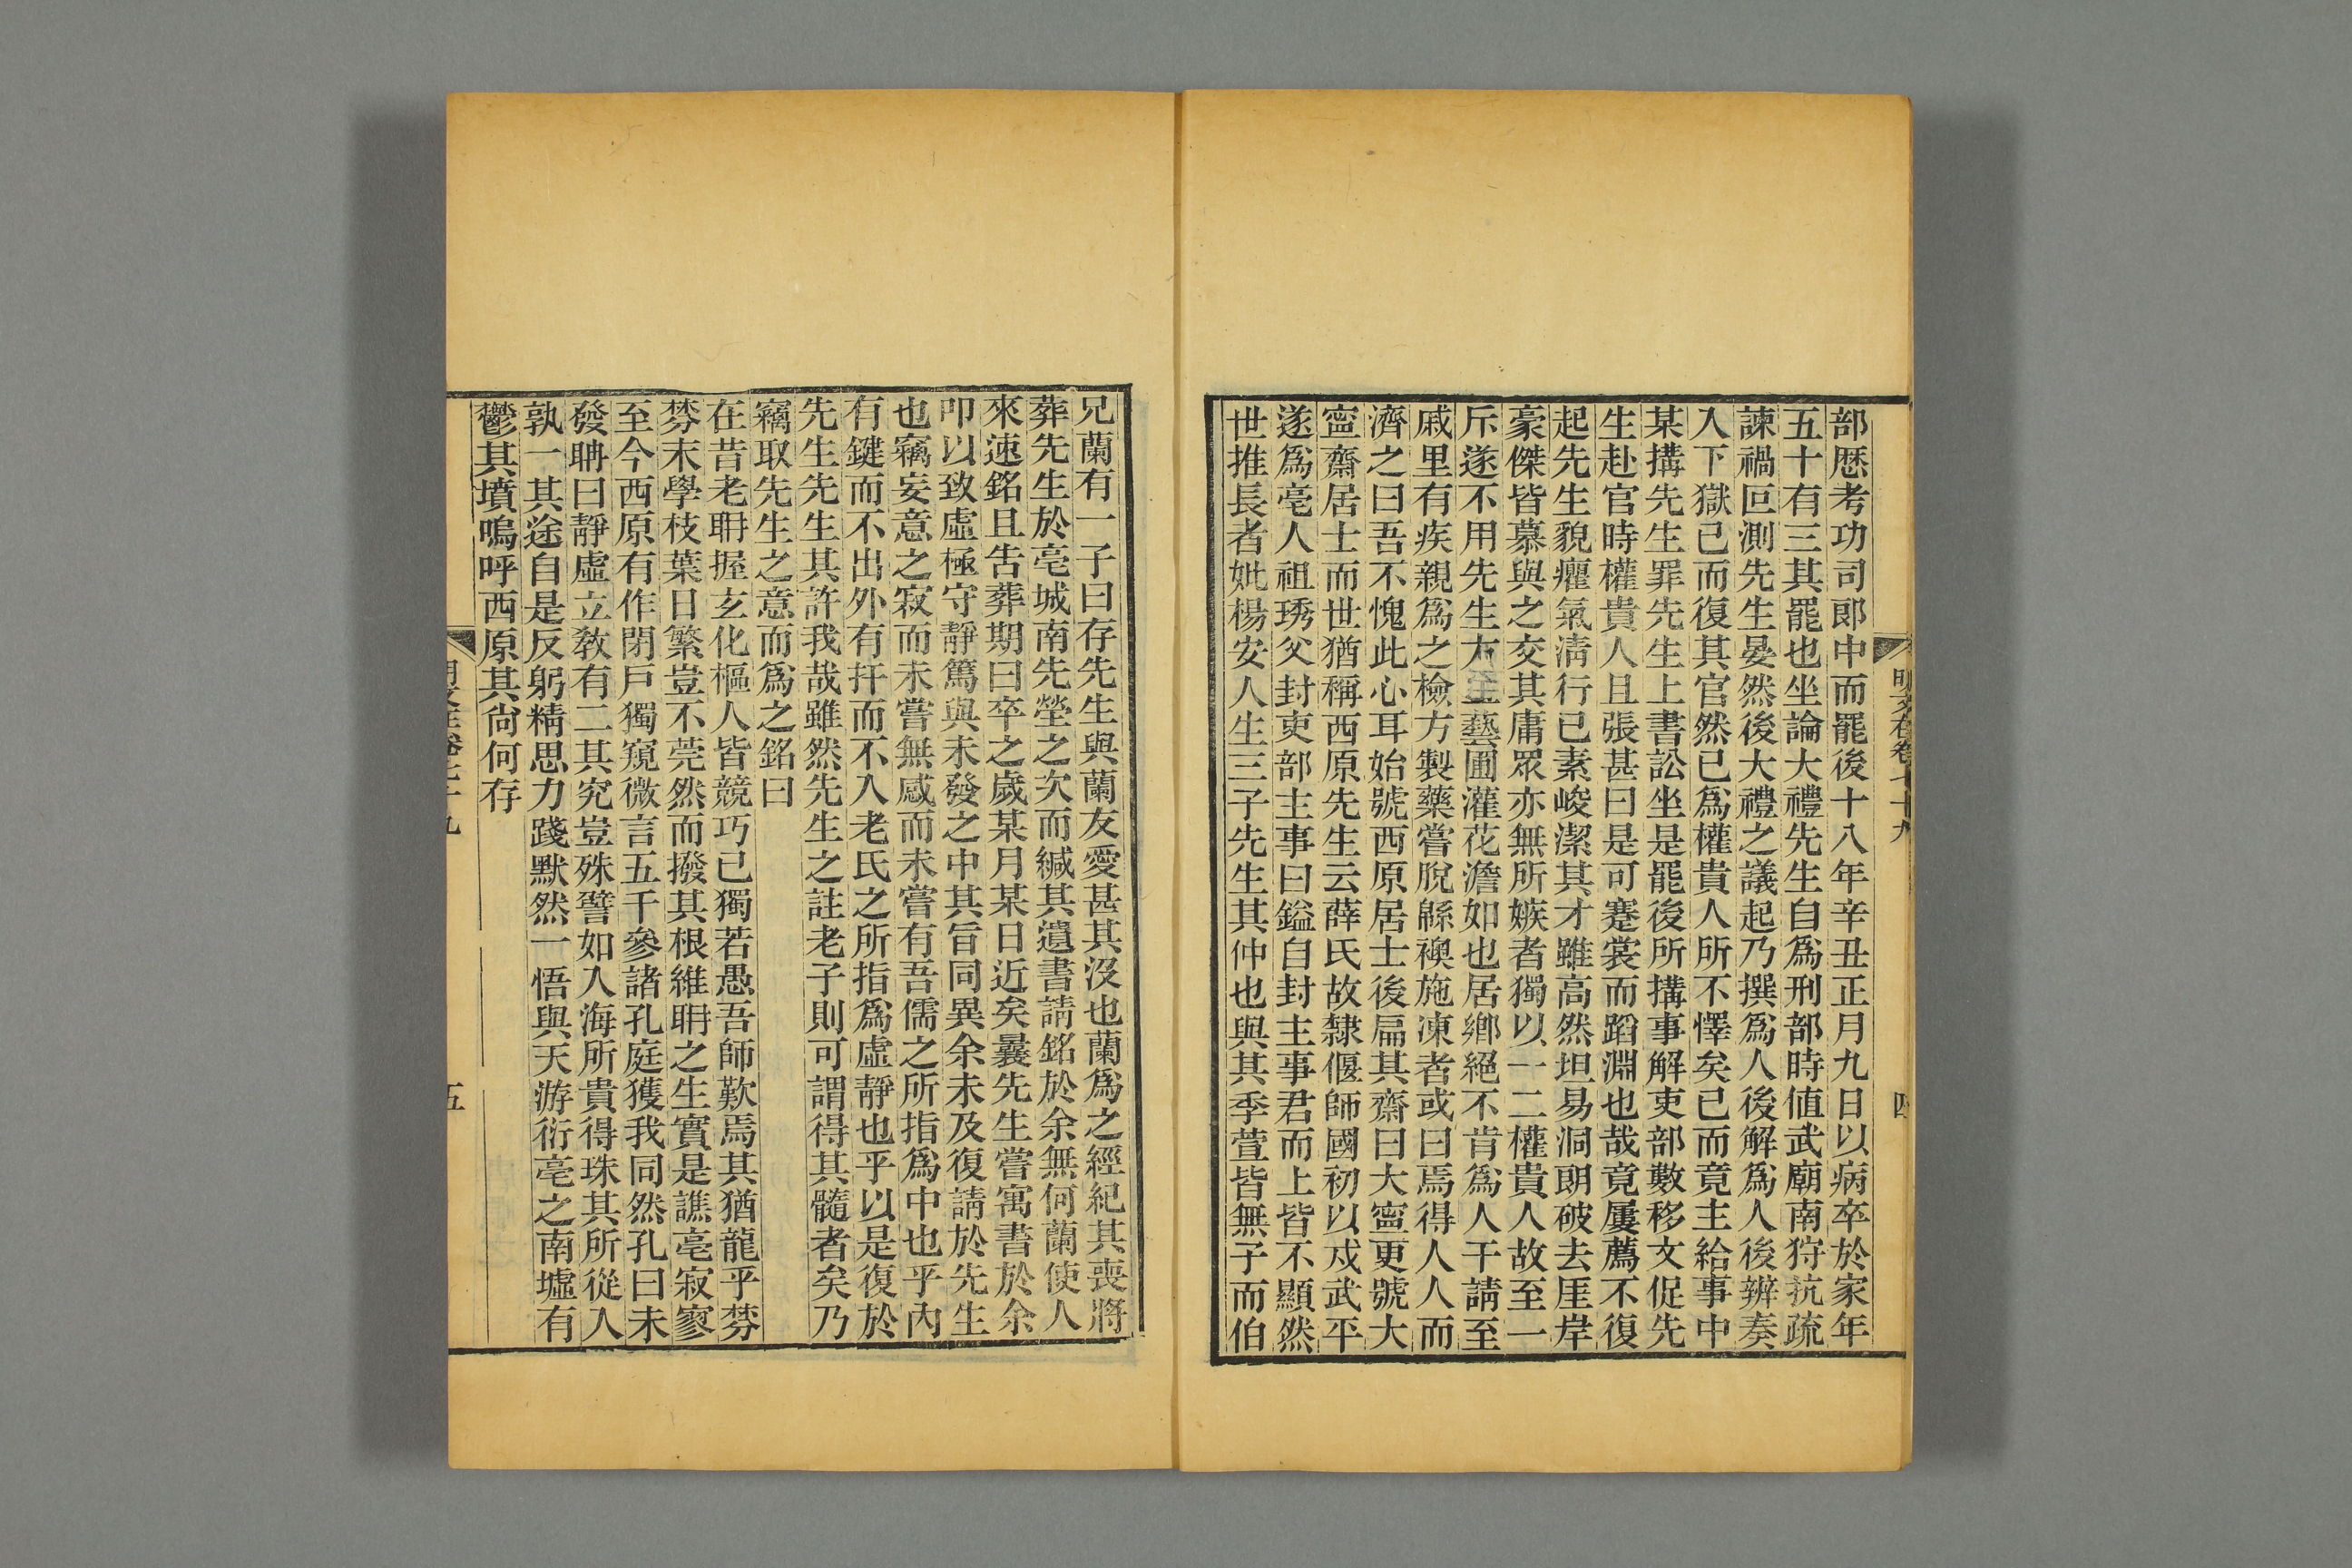 部厯考功司郎中而罷後十八年辛丑正月九日以病卒於家年
五十有三其罷也坐論大禮先生自爲刑部時值武廟南狩抗疏
諫禍叵測先生晏然後大禮之議起乃撰爲人後解爲人後辨奏
入下獄已而復其官然已爲權貴人所不懌矣已而竟主給事中
某搆先生罪先生上書訟坐是罷後所搆事解吏部數移文促先
生赴官時權貴人且張甚曰是可蹇裳而蹈淵也哉竟屢薦不復
起先生貌癯氣淸行已素峻潔其才雖高然坦易洞朗破去厓岸
豪傑皆慕與之交其庸眾亦無所嫉者獨以一二權貴人故至一
斥遂不用先生方藝圃灌花澹如也居鄕絕不肯爲人干請至
戚里有疾親爲之檢方製藥嘗脫緜襖施凍者或曰焉得人人而
濟之曰吾不愧此心耳始號西原居士後扁其齋曰大寧更號大
寧齋居士而世猶稱西原先生云薛氏故隸偃師國初以戍武平
遂爲亳人祖琇父封吏部主事曰鎰自封主事君而上皆不顯然
世推長者妣楊安人生三子先生其仲也與其季萱皆無子而伯
明文在卷七十九
四
兄蘭有一子曰存先生與蘭友愛甚其沒也蘭爲之經紀其喪將
葬先生於亳城南先塋之次而緘其遺書請銘於余無何蘭使人
來速銘且吿葬期曰卒之歲某月某日近矣曩先生嘗寓書於余
叩以致虛極守靜篤與未發之中其旨同異余未及復請於先生
也竊妄意之寂而未嘗無感而未嘗有吾儒之所指爲中也乎內
有鍵而不出外有扞而不入老氏之所指爲虛靜也乎以是復於
先生先生其許我哉雖然先生之註老子則可謂得其髓者矣乃
竊取先生之意而爲之銘曰
在昔老聃握玄化樞人皆競巧已獨若愚吾師歎焉其猶龍乎棼
棼末學枝葉日繁豈不莞然而撥其根維聃之生實是譙亳寂寥
至今西原有作閉戶獨窺微言五千參諸孔庭獲我同然孔曰未
發聃曰靜虛立敎有二其究豈殊譬如入海所貴得珠其所從入
孰一其途自是反躬精思力踐默然一悟與天游衍亳之南墟有
鬱其墳嗚呼西原其尙何存
五